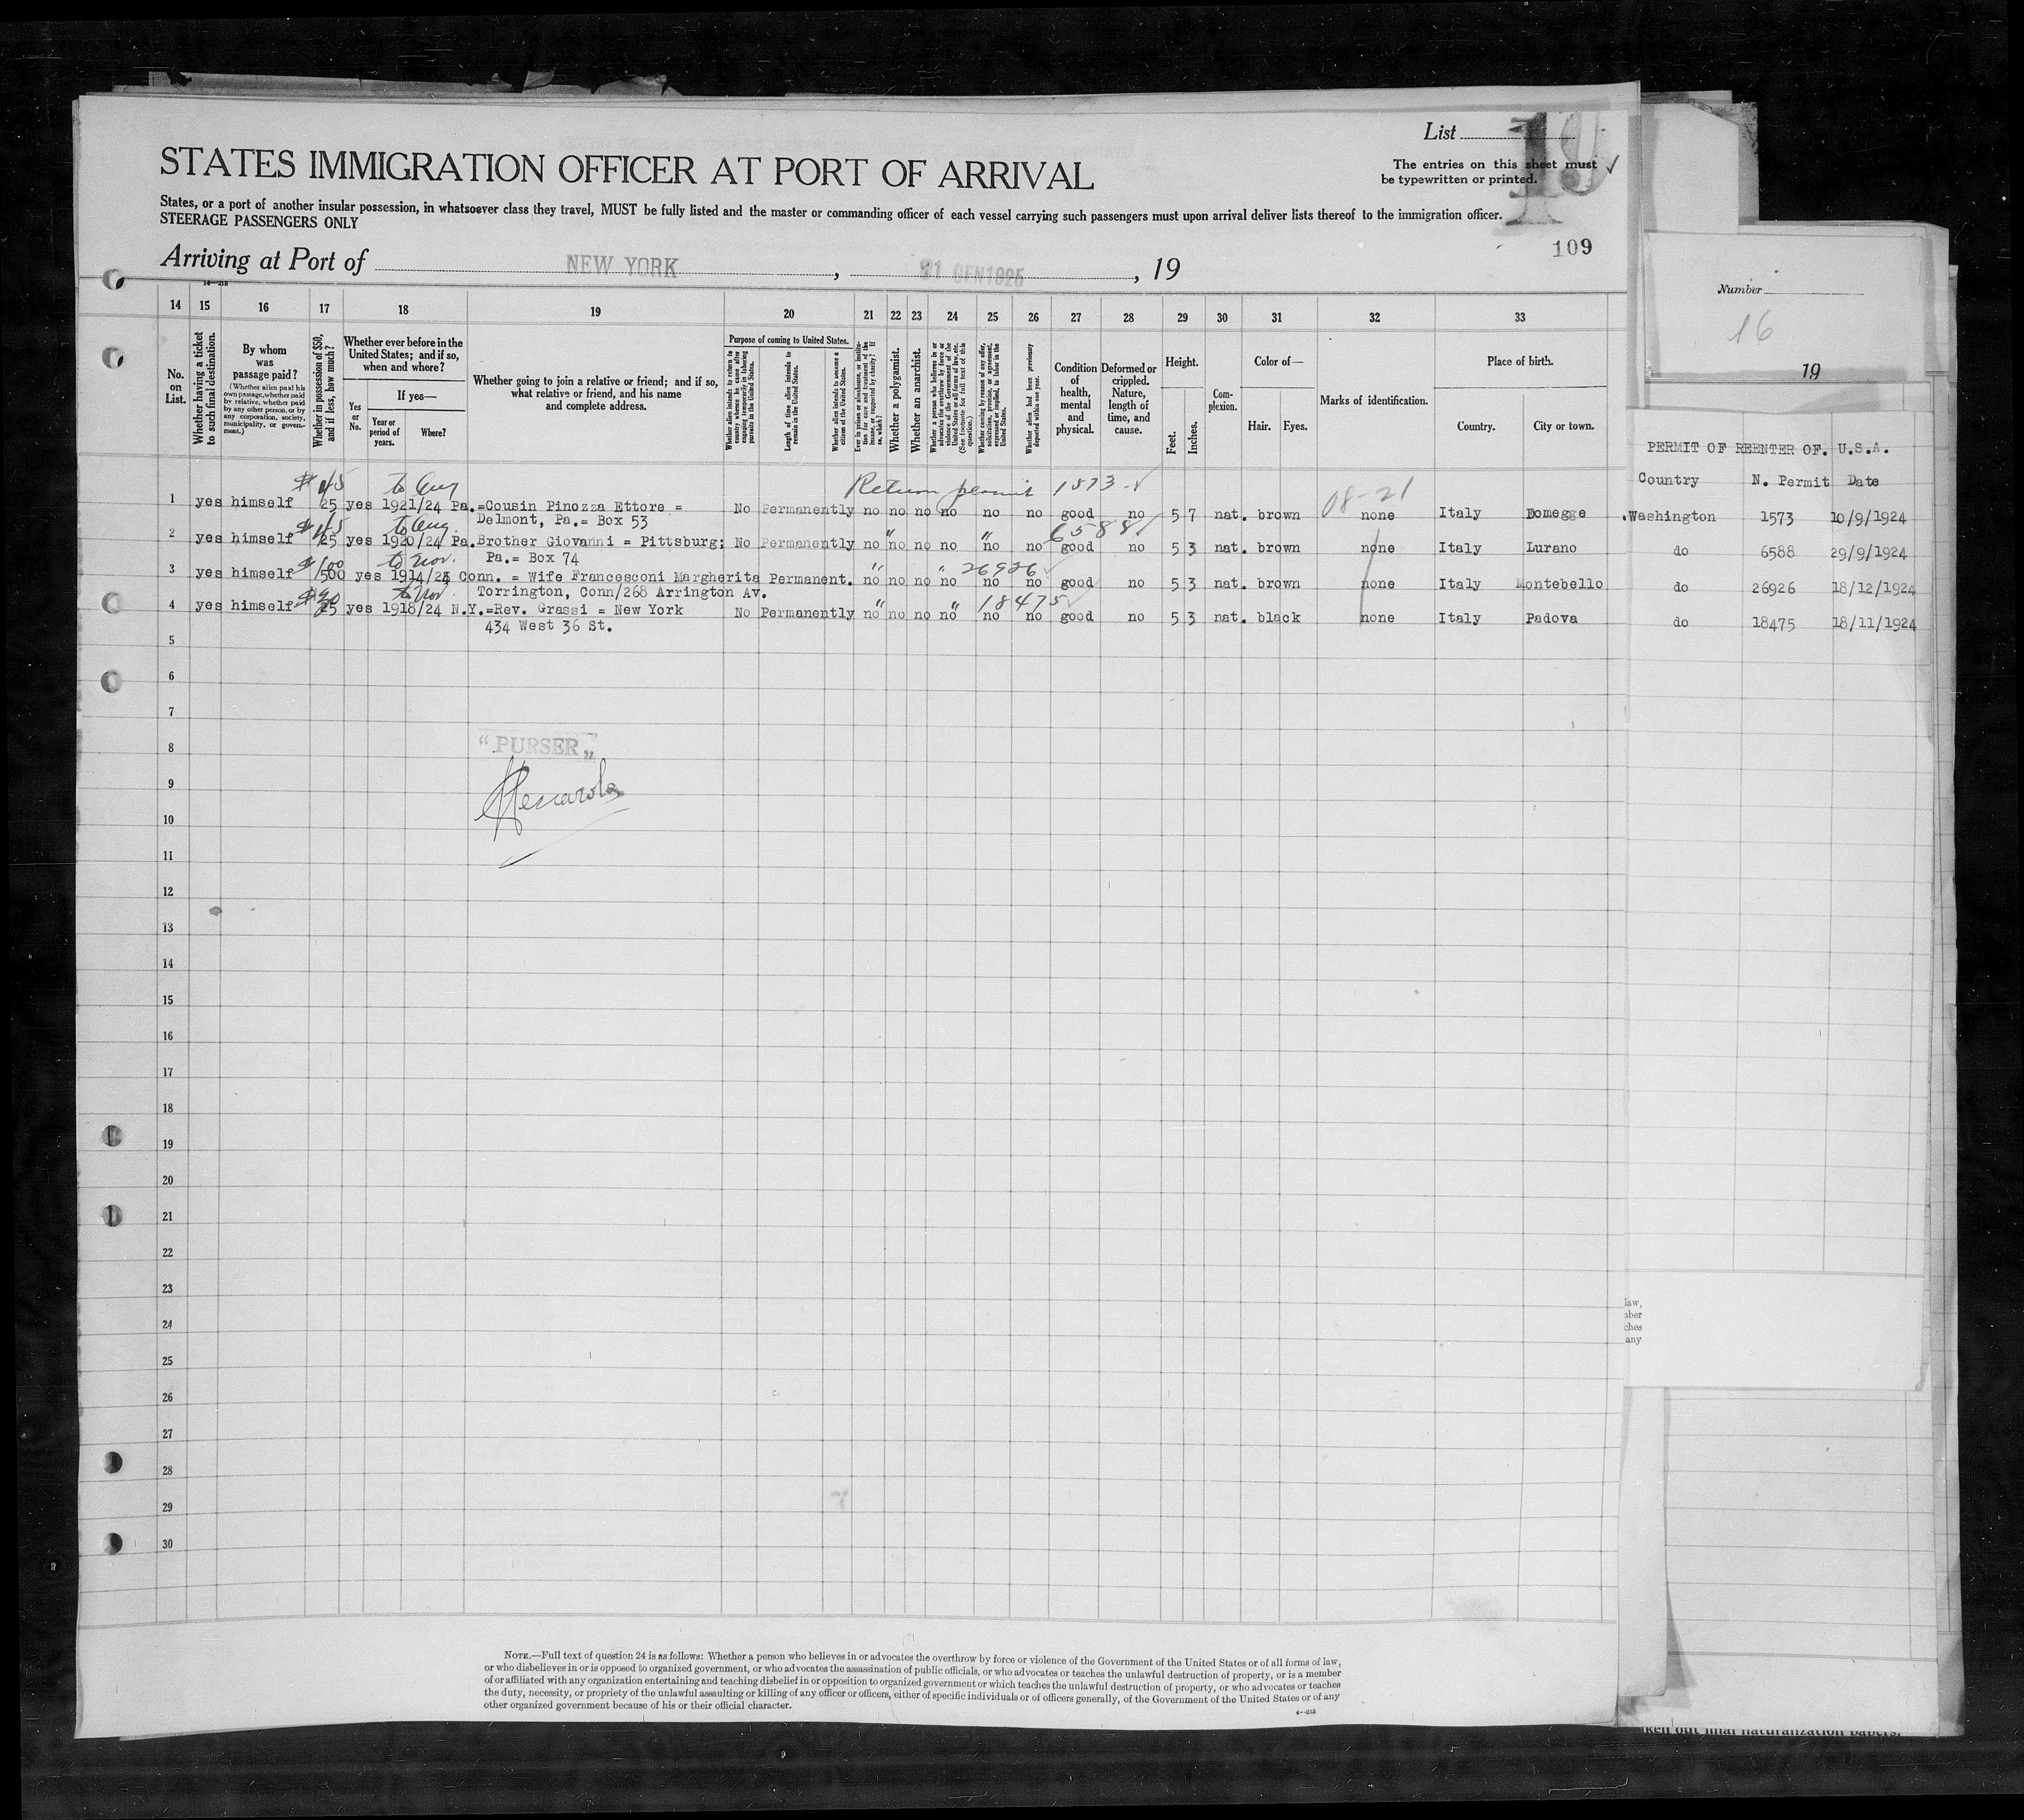 List 19
The entries on this sheet must
be typewritten or printed.
STATES IMMIGRATION OFFICER AT PORT OF ARRIVAL
States, or a port of another insular possession, in whatsoever class they travel, MUST be fully listed and the master or commanding officer of each vessel carrying such passengers must upon arrival deliver lists thereof to the immigration officer.
STEERAGE PASSENGERS ONLY
109
Arriving at Port of NEW YORK , 19
Number
16
19
14 15 16 17 18 19 20 21 22 23 24 25 26 27 28 29 30 31 32 33
No. on List.
Whether having a ticket to such final destination.
By whom was passage paid?
(Whether alien paid his own passage, whether paid by relative, whether paid by any other person, or by any corporation, society, municipality, or government.)
Whether in possession of $50, and if less, how much?
Whether ever before in the United States; and if so, when and where?
Yes or No.
If yes—
Year or period of years.
Where?
Whether going to join a relative or friend; and if so, what relative or friend, and his name and complete address.
Purpose of coming to United States.
Whether alien intends to return to country whence he came after engaging temporarily in laboring pursuits in the United States.
Length of time alien intends to remain in the United States.
Whether alien intends to become a citizen of the United States.
Whether a polygamist.
Whether an anarchist.
Condition of health, mental and physical.
Deformed or crippled. Nature, length of time, and cause.
Height.
Feet.
Inches.
Complexion.
Color of—
Hair.
Eyes.
Marks of identification.
Place of birth.
Country.
City or town.
PERMIT OF REENTER OF. U.S.A.
Country N. Permit Date
$45 to Aug Return permit 1573 ✓ 08-21
1 yes himself 25 yes 1921/24 Pa.=Cousin Pinozza Ettore = No Permanently no no no no no no good no 5 7 nat. brown none Italy Domegge Washington 1573 10/9/1924
Delmont, Pa.= Box 53
$45 to Aug. " " 6588
2 yes himself 25 yes 1920/24 Pa.Brother Giovanni = Pittsburg; No Permanently no no no no no no good no 5 3 nat. brown none Italy Lurano do 6588 29/9/1924
Pa.= Box 74
$100 to Nov. " " 26926 ✓
3 yes himself 500 yes 1914/24 Conn. = Wife Francesconi Margherita Permanent. no no no no no no good no 5 3 nat. brown none Italy Montebello do 26926 18/12/1924
Torrington, Conn/268 Arrington Av.
to Nov " " 18475 ✓
4 yes himself 25 yes 1918/24 N.Y.=Rev. Grassi = New York No Permanently no no no no no no good no 5 3 nat. black none Italy Padova do 18475 18/11/1924
434 West 36 St.
5
6
7
8
"PURSER"
9
10
11
12
13
14
15
16
17
18
19
20
21
22
23
24
25
26
27
28
29
30
law,
ches
any
NOTE.—Full text of question 24 is as follows: Whether a person who believes in or advocates the overthrow by force or violence of the Government of the United States or of all forms of law,
or who disbelieves in or is opposed to organized government, or who advocates the assassination of public officials, or who advocates or teaches the unlawful destruction of property, or is a member
of or affiliated with any organization entertaining and teaching disbelief in or opposition to organized government or which teaches the unlawful destruction of property, or who advocates or teaches
the duty, necessity, or propriety of the unlawful assaulting or killing of any officer or officers, either of specific individuals or of officers generally, of the Government of the United States or of any
other organized government because of his or their official character.
out final naturalization papers.